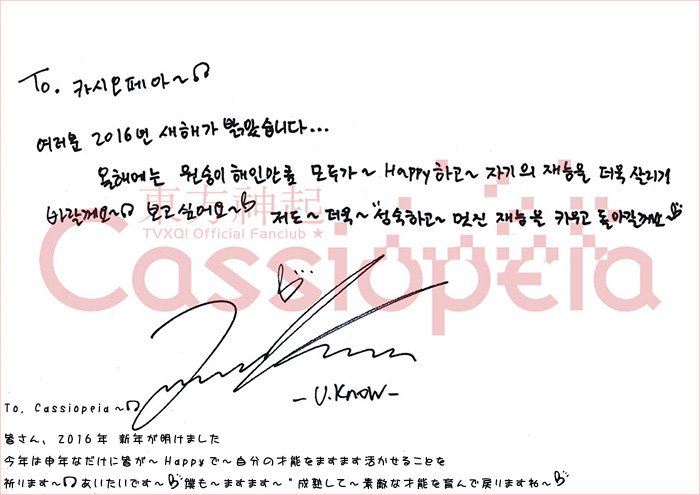 To. 카시오페아~♫
여러분 2016년 새해가 밝았습니다...
올해에는 원숭이해인만큼 모두가~ Happy하고~ 자기의 재능을 더욱 살리기
바랄게요~♫ 보고싶어요~ 저도~ 더욱~ "성숙하고~ 멋진 재능을 키우고 돌아갈게요~
東方神起
TVXQ! Official Fanclub ★
Cassiopeia
-U.Know-
To, Cassiopeia~♫
皆さん、2016年 新年が明けました
今年は申年なだけに皆が~ Happyで~自分の才能をますます活かせることを
祈ります~♫あいたいです~ 僕も~ますます~"成熟して~素敵な才能を育んで戻りますね~